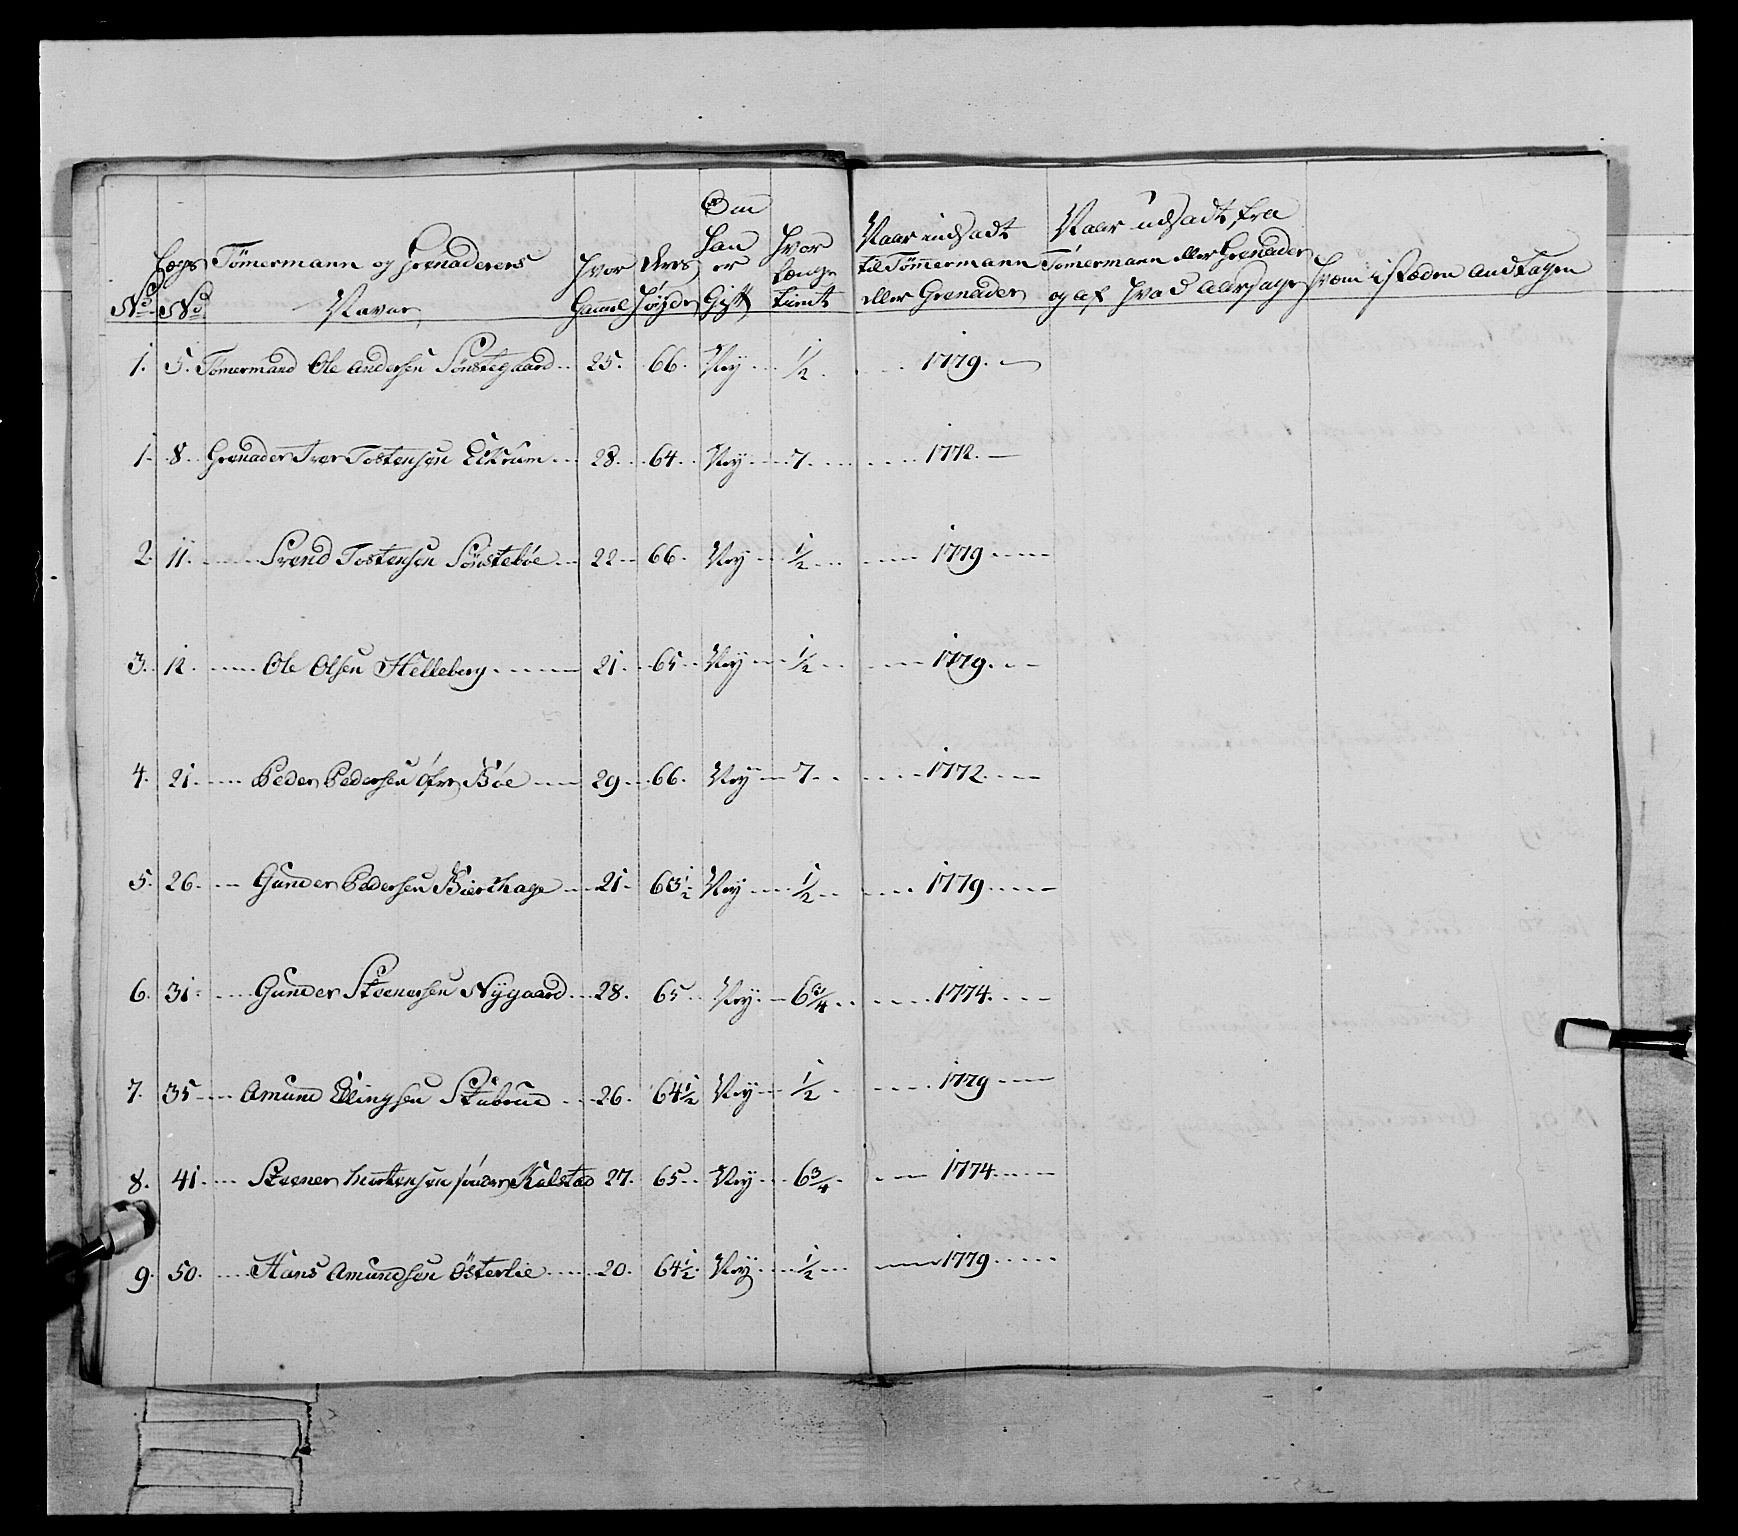 Om
han
Lægs Tömermann og Grenaderers Hvor Deres er Hvor længe Naar indsadt til Tømmermann Naar udsadt fra Tömermann eller Grenader
No No Navne Gamel Høyde Gift tient eller Grenader og af Hvad Aarsage Hvem i Steden Andtagen
1. 5. Tömermand Ole Andersen Sönstegaard 25. 66. Ney 1/2 1779.
1. 8 Grenader Iver Tostensen Eikrem 28. 64. Ney 7. 1772.
2. 11. Svend Tostensen Sönsteböe 22 66. Ney 1/2 1779
3. 12. Ole Olsen Helleberg 21. 65 Ney 1/2 1779.
4. 21. Peder Pedersen Öfre Böe 29 66. Ney 7 1772.
5. 26. Gunder Pedersen Bierkhage 21. 63 1/2 Ney 1/2 1779
6. 31. Gunder Steenersen Nygaard 28. 65 Ney 6 3/4 1774.
7. 35 Amund Ellingsen Stubrud 26. 64 1/2 Ney 1/2 1779
8. 41. Steener Mortensen söndre Kalstad 27. 65 Ney 6 3/4 1774.
9. 50. Hans Amundsen Österlie 20. 64 1/2 Ney 1/2 1779